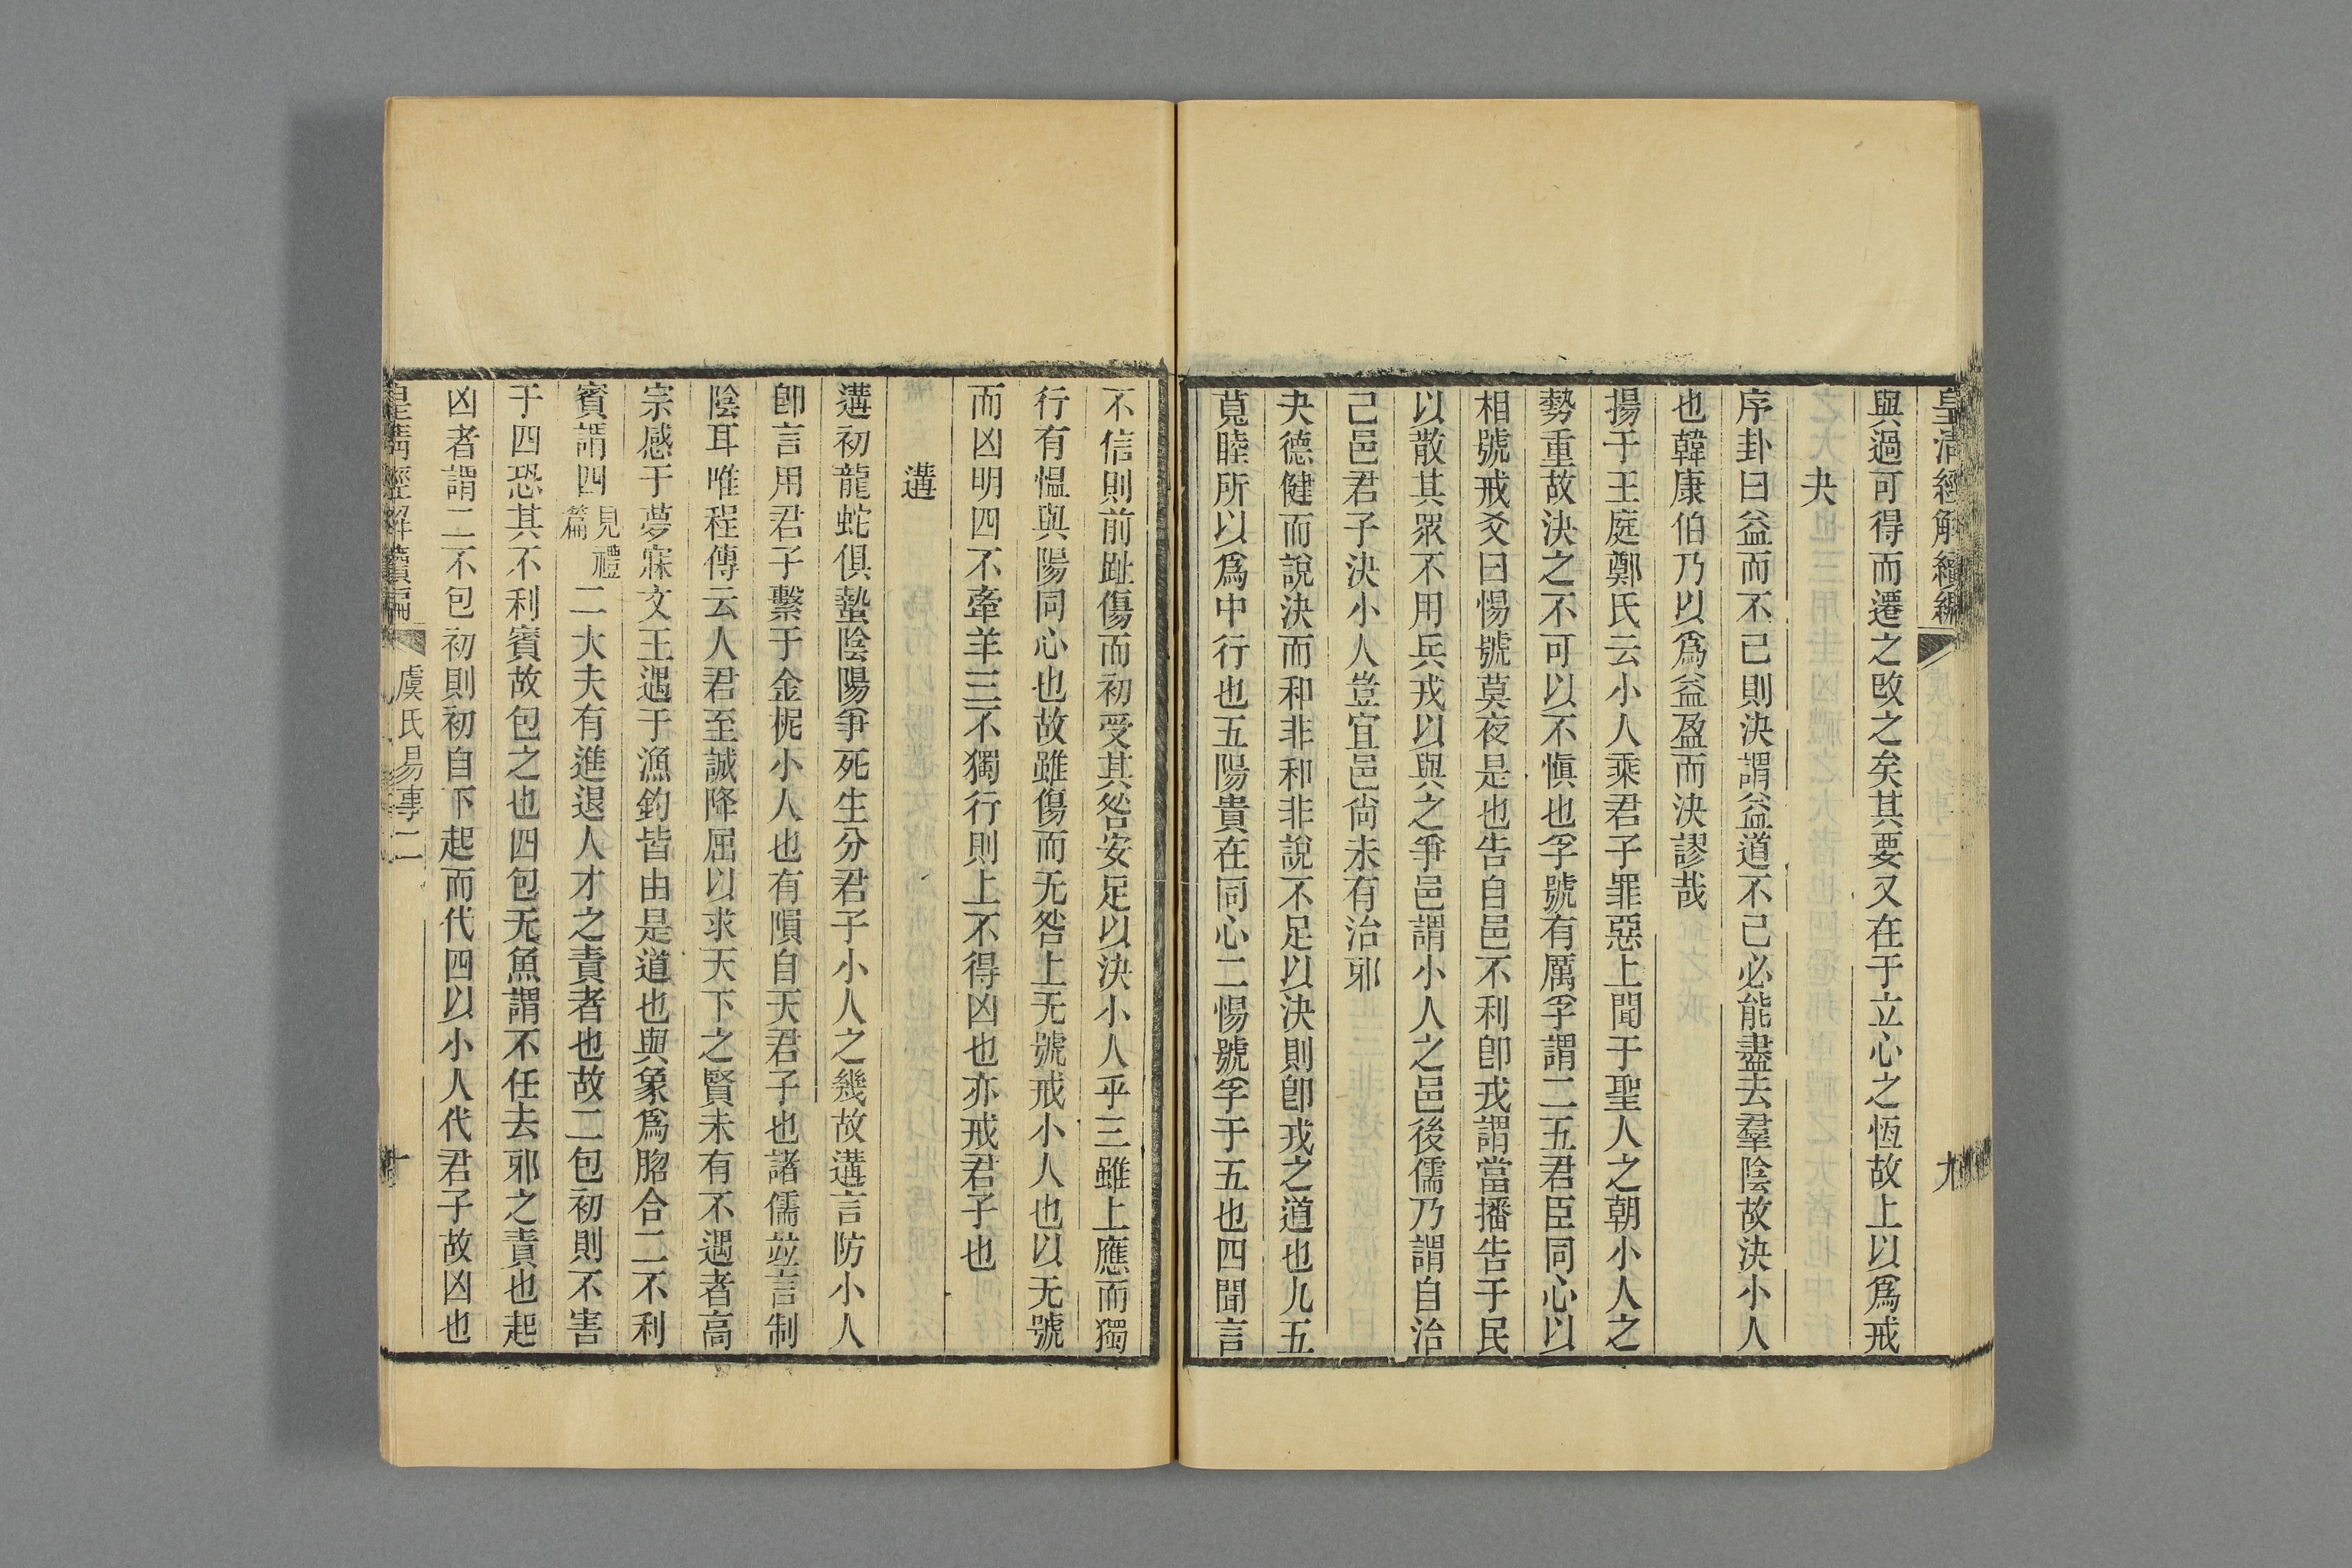 皇清經解續編
九
與過可得而遷之改之矣其要又在于立心之恆故上以爲戒
夬
序卦曰益而不已則決謂益道不已必能盡去羣陰故決小人
也韓康伯乃以爲益盈而決謬哉
揚于王庭鄭氏云小人乘君子罪惡上聞于聖人之朝小人之
勢重故決之不可以不愼也孚號有厲孚謂二五君臣同心以
相號戒爻曰惕號莫夜是也告自邑不利卽戎謂當播告于民
以散其眾不用兵戎以與之爭邑謂小人之邑後儒乃謂自治
己邑君子決小人豈宜邑尙未有治邪
夬德健而說決而和非和非說不足以決則卽戎之道也九五
莧睦所以爲中行也五陽貴在同心二惕號孚于五也四聞言
不信則前趾傷而初受其咎安足以決小人乎三雖上應而獨
行有慍與陽同心也故雖傷而无咎上无號戒小人也以无號
而凶明四不牽羊三不獨行則上不得凶也亦戒君子也
遘
遘初龍蛇俱蟄陰陽爭死生分君子小人之幾故遘言防小人
卽言用君子繫于金柅小人也有隕自天君子也諸儒竝言制
陰耳唯程傳云人君至誠降屈以求天下之賢未有不遇者高
宗感于夢寐文王遇于漁釣皆由是道也與象爲䏰合二不利
賓謂四見禮篇二大夫有進退人才之責者也故二包初則不害
于四恐其不利賓故包之也四包无魚謂不任去邪之責也起
凶者謂二不包初則初自下起而代四以小人代君子故凶也
皇清經解續編
虞氏易事二
十